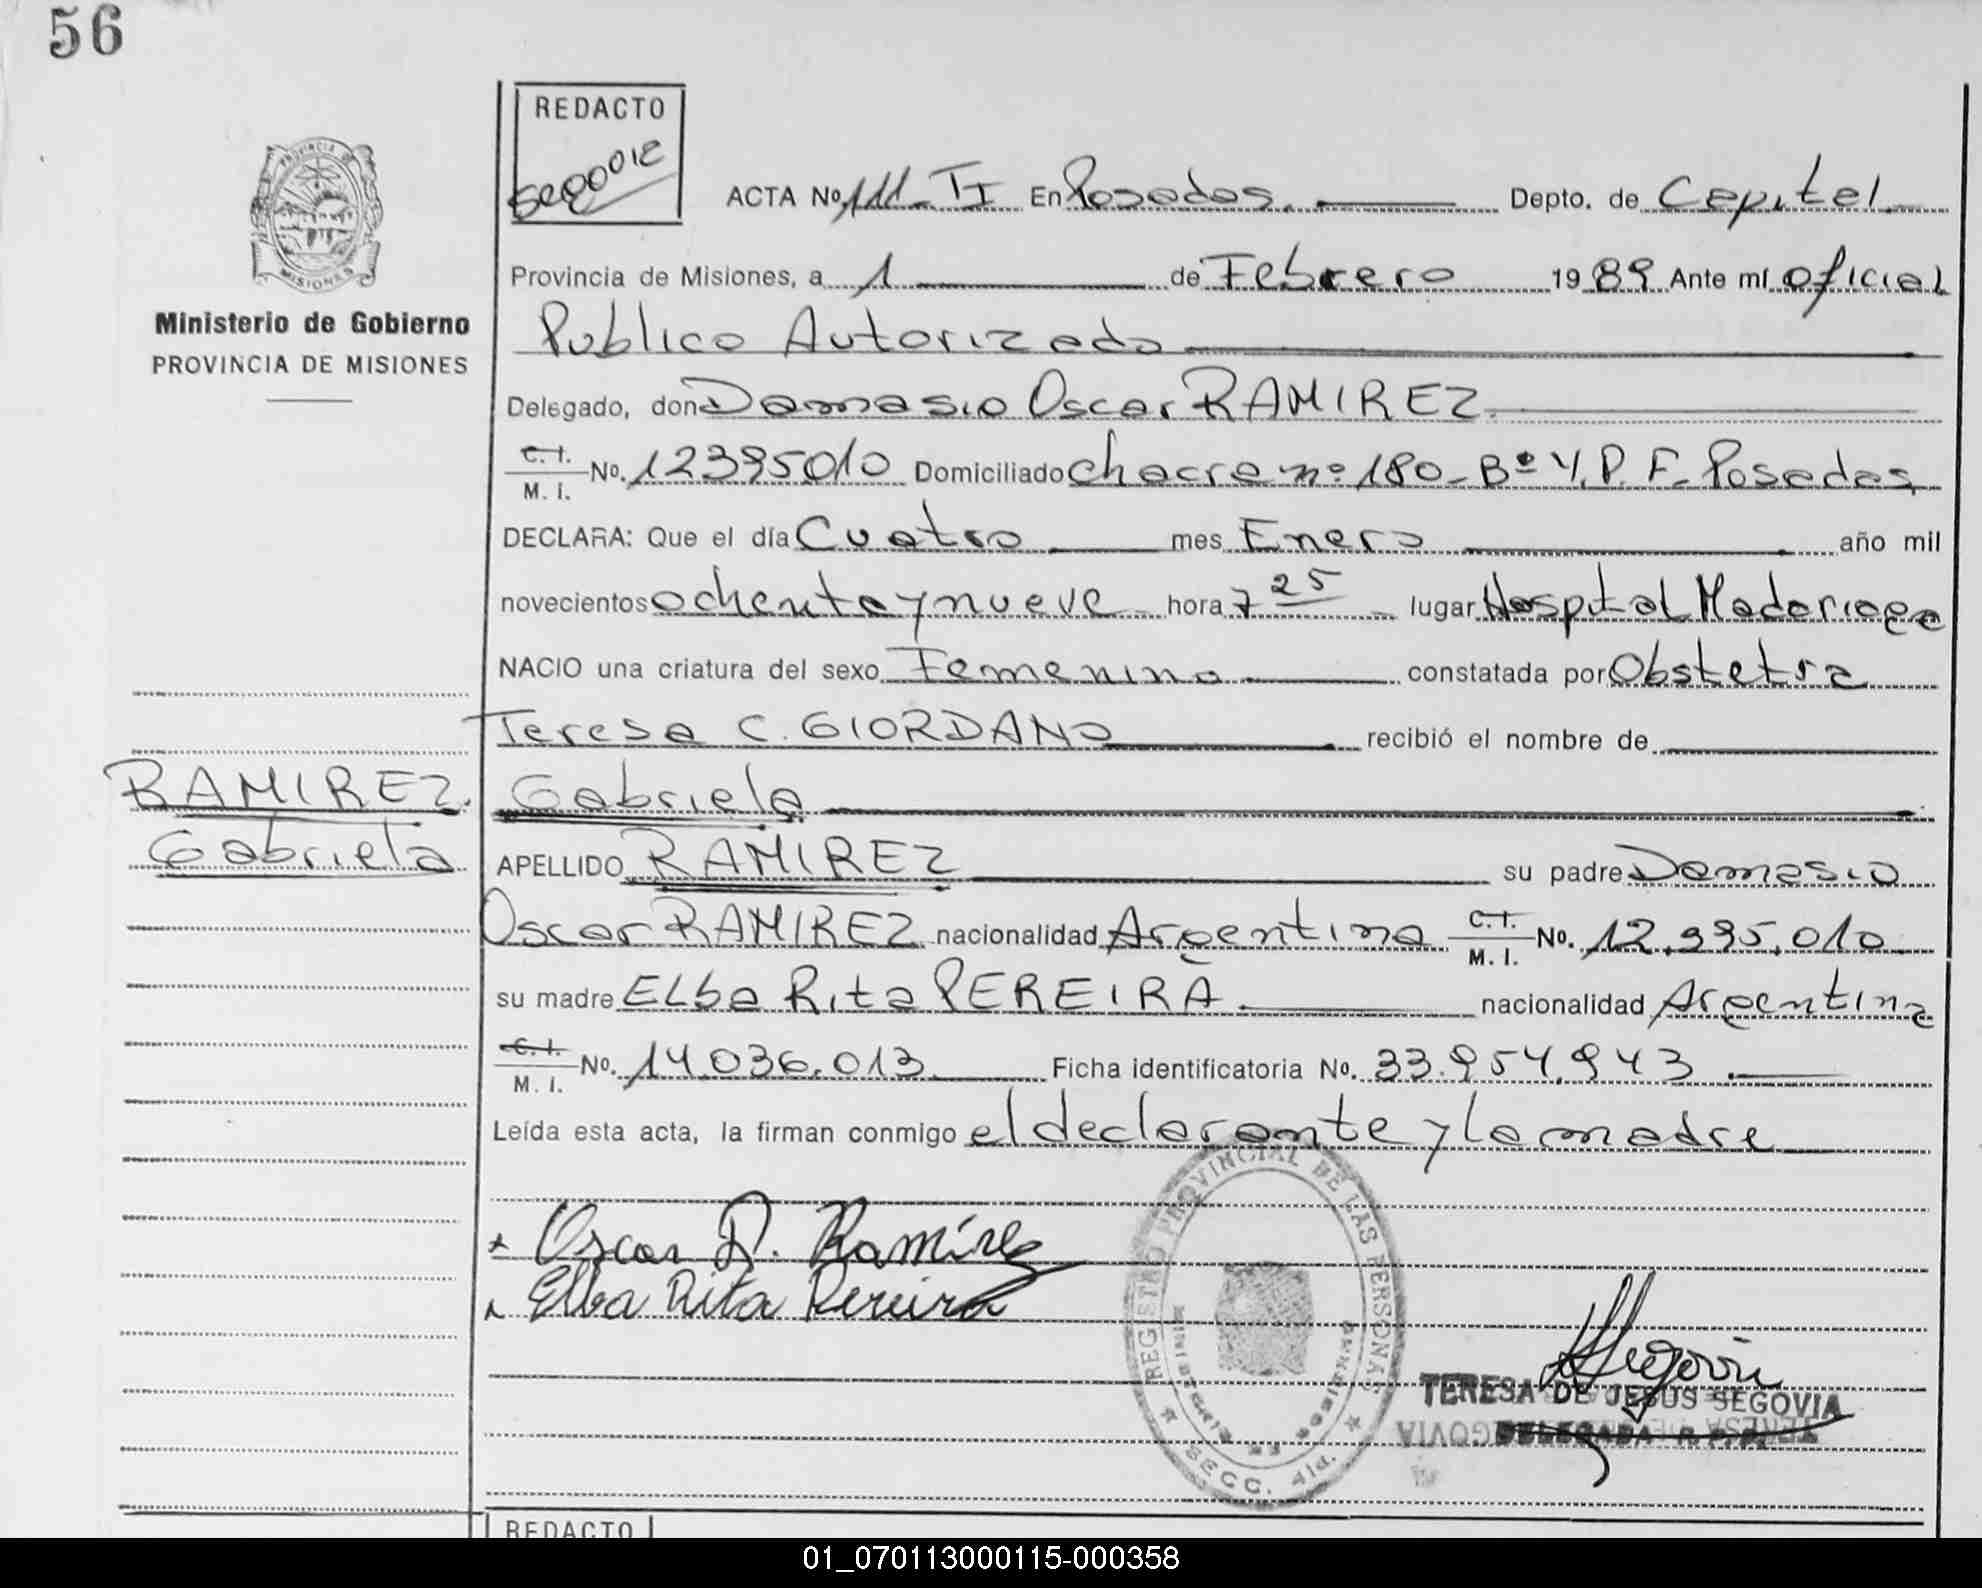 56
REDACTO
ACTA No. 111-TI En Posadas. Depto. de Capital
Provincia de Misiones, a 1 de Febrero 1989 Ante mí oficial
Publico Autorizado
PROVINCIA DE
MISIONES
Ministerio de Gobierno
PROVINCIA DE MISIONES
Delegado, don Damasio Oscar RAMIREZ.
C.I. M.I. No. 12395010 Domiciliado chacra nº 180-Bº Y.P.F. Posadas
DECLARA: Que el día Cuatro mes Enero año mil
novecientos ochenta y nueve hora 7 25 lugar Hospital Madariaga
NACIO una criatura del sexo Femenino constatada por Obstetra
Teresa C. GIORDANO recibió el nombre de
RAMIREZ.
Gabriela
Gabriela
APELLIDO RAMIREZ su padre Damasio
Oscar RAMIREZ nacionalidad Argentina C.I. M.I. No. 12.395.010
su madre ELba Rita PEREIRA nacionalidad Argentina
C.I. M.I. No. 14.036.013 Ficha identificatoria No. 33.954.943
Leída esta acta, la firman conmigo el declarante y la madre
Oscar D. Ramírez
Elba Rita Pereira
REGISTRO PROVINCIAL DE LAS PERSONAS
SECC. 4ta.
Segovia
TERESA DE JESUS SEGOVIA
DELEGADA R. P. P.
REDACTO
01_070113000115-000358